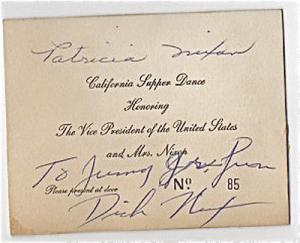 Patricia Nixon
California Supper Dance
Honoring
The Vice President of the United States
and Mrs. Nixon
To
Please present at door
Nº 85
Dick Nixon